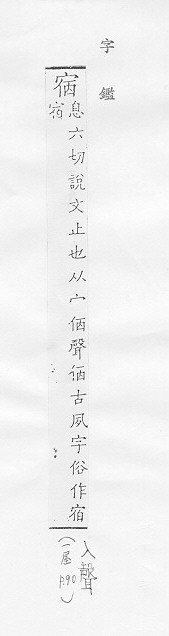 字鑑
宿
息六切說文止也从宀㑉聲㑉古夙字俗作宿
宿
入聲
(一屋 P.90)